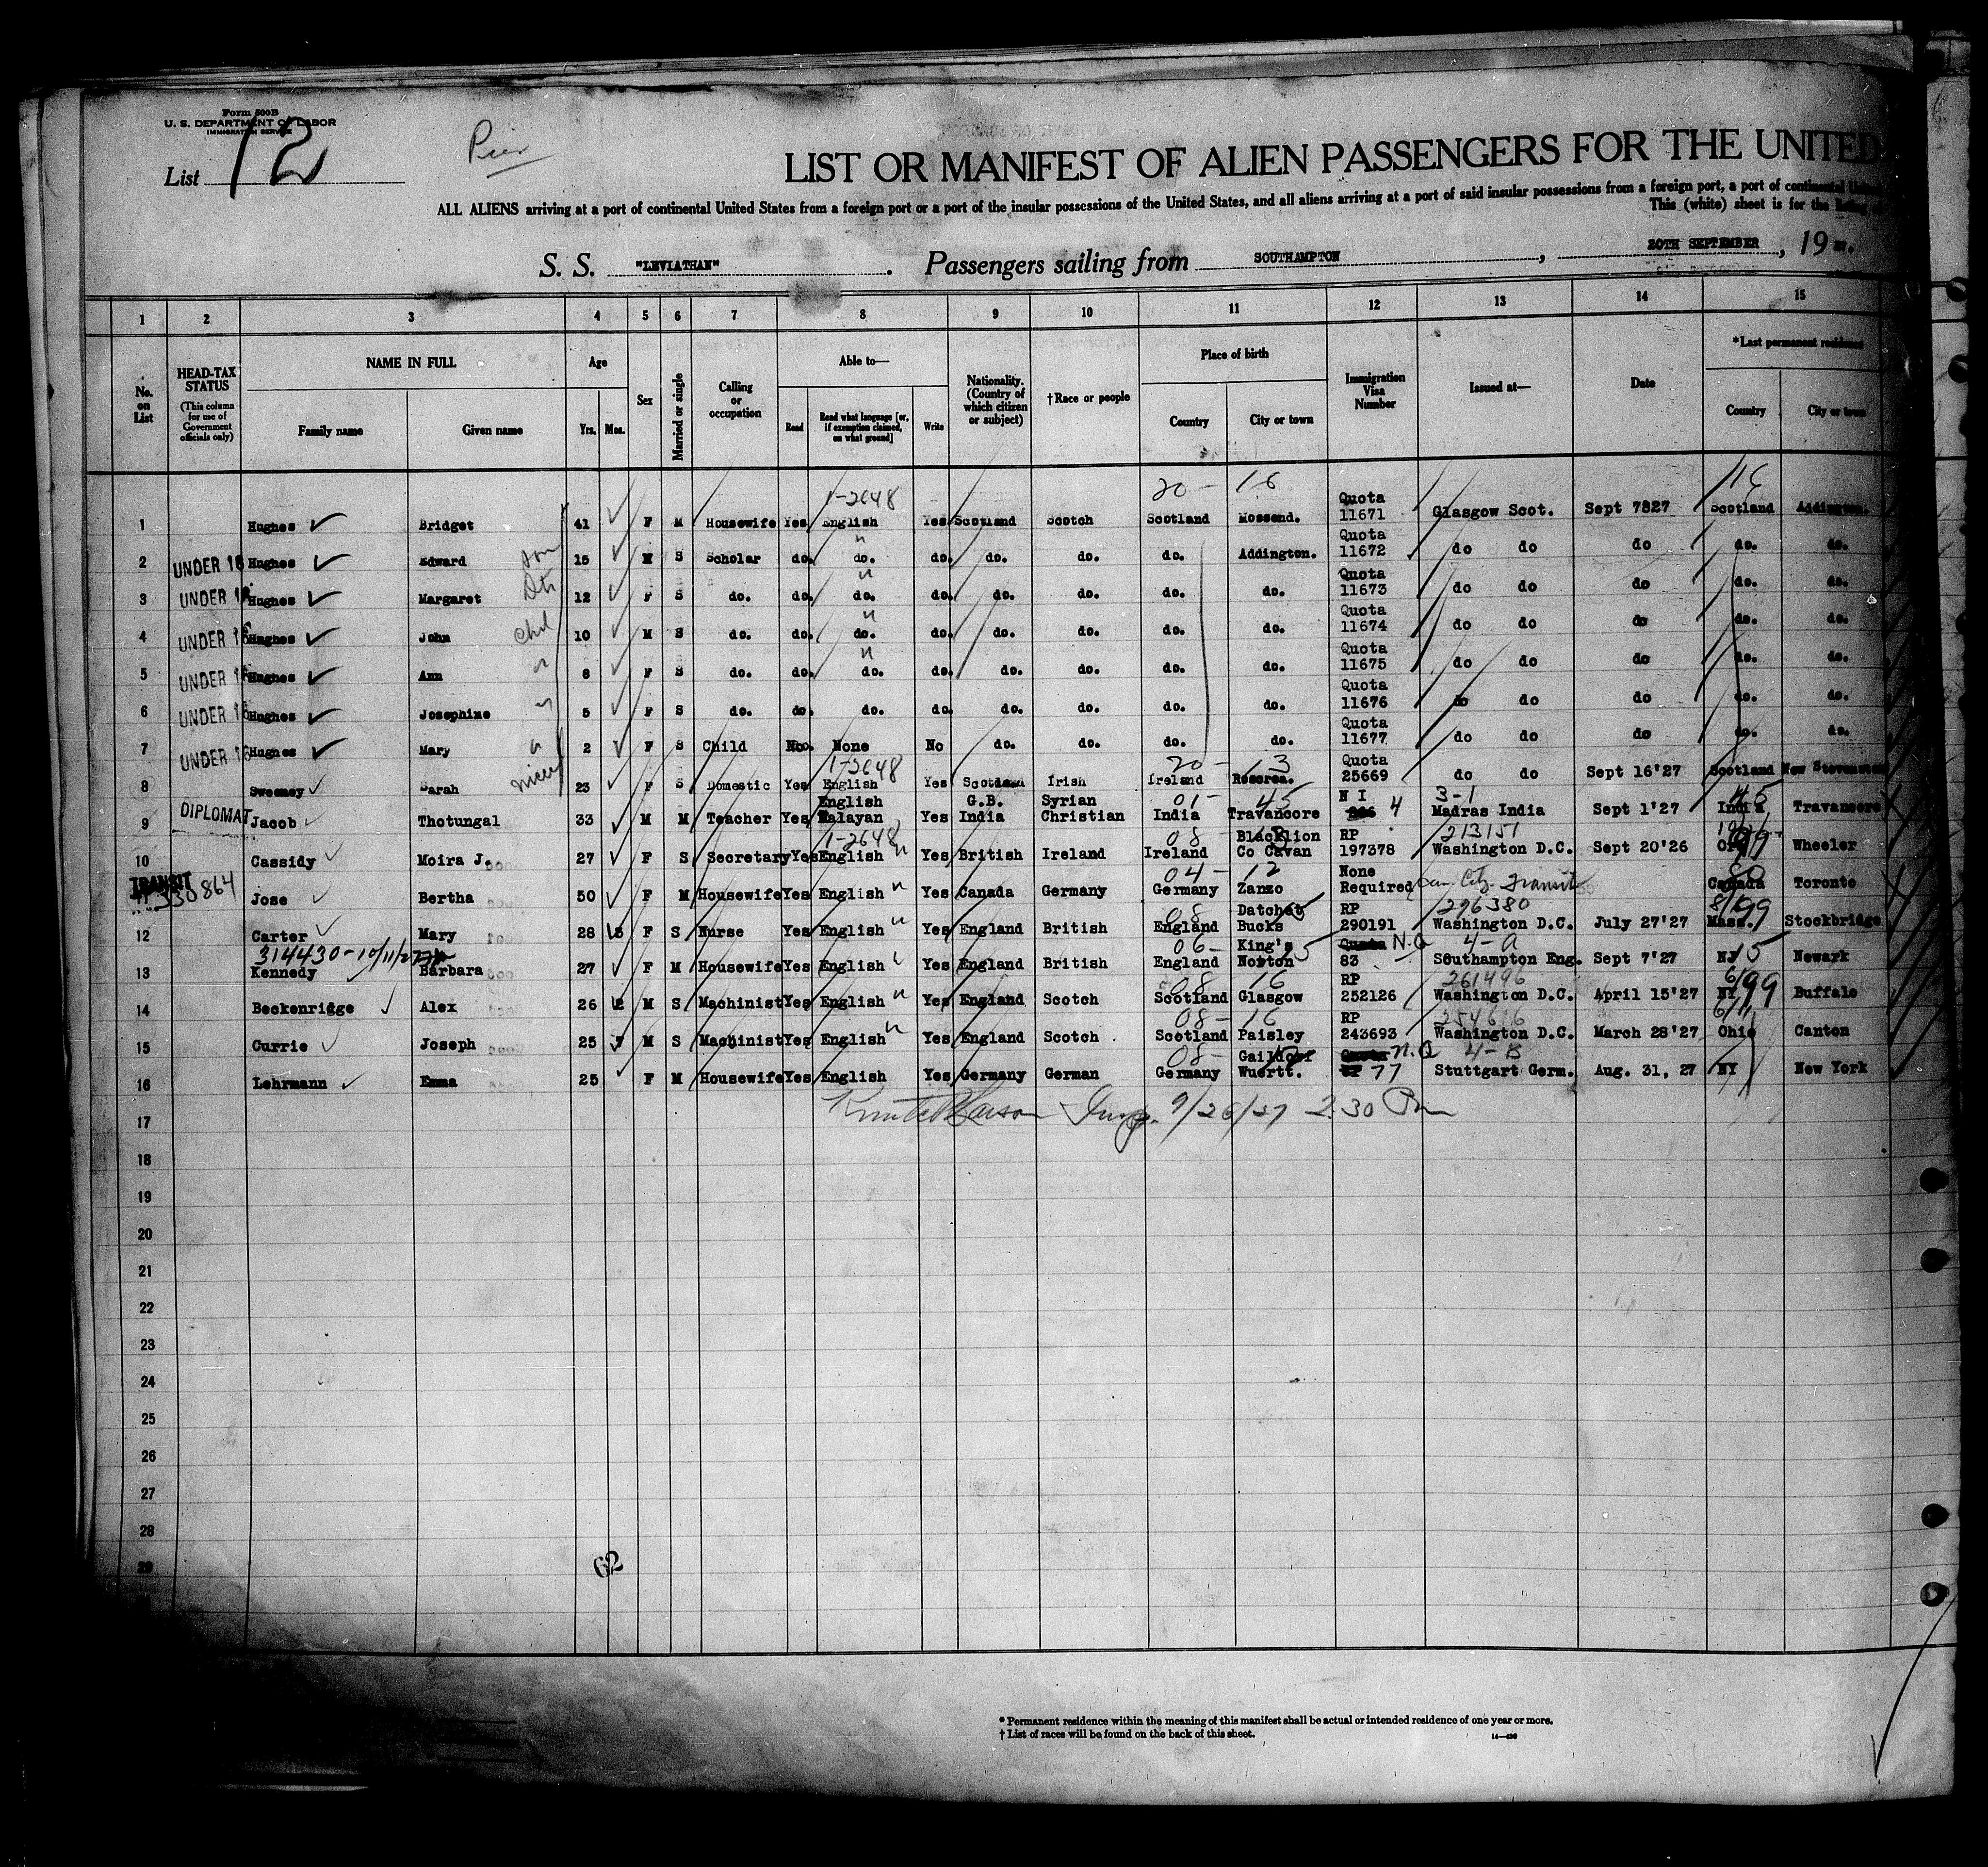 Form 500B
U. S. DEPARTMENT OF LABOR
IMMIGRATION SERVICE
List 12
LIST OR MANIFEST OF ALIEN PASSENGERS FOR THE UNITED
ALL ALIENS arriving at a port of continental United States from a foreign port or a port of the insular possessions of the United States, and all aliens arriving at a port of said insular possessions from a foreign port, a port of continental
This (white) sheet is for the listing
S. S. "LEVIATHAN". Passengers sailing from SOUTHAMPTON, 20TH SEPTEMBER, 19
1 2 3 4 5 6 7 8 9 10 11 12 13 14 15
No. on List
HEAD-TAX STATUS (This column for use of Government officials only)
NAME IN FULL Family name Given name
Age Yrs. Mos.
Sex
Married or single
Calling or occupation
Able to— Read Read what language [or, if exemption claimed, on what ground] Write
Nationality. (Country of which citizen or subject)
†Race or people
Place of birth Country City or town
Immigration Visa Number
Issued at—
Date
*Last permanent residence Country City or town
1-2648 20- 16 16
1 Hughes Bridget 41 F M Housewife Yes English Yes Scotland Scotch Scotland Mossend. Quota 11671 Glasgow Scot. Sept 7827 Scotland Addington.
2 UNDER 16 Hughes Edward son 15 M S Scholar do. do. do. do. do. do. Addington. Quota 11672 do do do do. do.
3 UNDER 16 Hughes Margaret Dtr 12 F S do. do. do. do. do. do. do. do. Quota 11673 do do do do. do.
4 UNDER 16 Hughes John Chil 10 M S do. do. do. do. do. do. do. do. Quota 11674 do do do do. do.
5 UNDER 16 Hughes Ann " 8 F S do. do. do. do. do. do. do. do. Quota 11675 do do do do. do.
6 UNDER 16 Hughes Josephine " 5 F S do. do. do. do. do. do. do. do. Quota 11676 do do do do. do.
7 UNDER 16 Hughes Mary " 2 F S Child No None No do. do. do. do. Quota 11677 do do do do. do.
1-2648 20- 13
8 Sweeney Sarah niece 23 F S Domestic Yes English Yes Scotland Irish Ireland Roscrea. Quota 25669 do do Sept 16'27 Scotland New Stevenston
9 DIPLOMAT Jacob Thotungal 33 M M Teacher Yes English Malayan Yes G.B. India Syrian Christian 01- 45 India Travancore N I 4 3-1 Madras India Sept 1'27 45 India Travancore
10 Cassidy Moira J. 27 F S Secretary Yes 1-2648 English Yes British Ireland 08 Ireland Blacklion Co Cavan RP 197378 213151 Washington D.C. Sept 20'26 99 Wheeler
11 TRANSIT 330864 Jose Bertha 50 F M Housewife Yes English Yes Canada Germany 04- 12 Germany Zanzo None Required Can. Cit. Transit Canada Toronto
12 Carter Mary 28 F S Nurse Yes English Yes England British 08 England Datchet Bucks RP 290191 296380 Washington D.C. July 27'27 8/99 Mass. Stockbridge
314430-10/11/27
13 Kennedy Barbara 27 F M Housewife Yes English Yes England British 06- England King's Norton Quota N.Q 83 4-a Southampton Eng. Sept 7'27 NJ Newark
14 Beckenridge Alex 26 2 M S Machinist Yes English Yes England Scotch 08 16 Scotland Glasgow RP 252126 261496 Washington D.C. April 15'27 6/99 NY Buffalo
15 Currie Joseph 25 M S Machinist Yes English Yes England Scotch 08- 16 Scotland Paisley RP 243693 254616 Washington D.C. March 28'27 Ohio Canton
16 Lehrmann Emma 25 F M Housewife Yes English Yes Germany German 08- Germany Gaildorf Wuertt. Quota N.Q 77 4-B Stuttgart Germ. Aug. 31, 27 NY New York
17 Insp. 9/26/27 2.30 Pm
18
19
20
21
22
23
24
25
26
27
28
29
62
* Permanent residence within the meaning of this manifest shall be actual or intended residence of one year or more.
† List of races will be found on the back of this sheet.